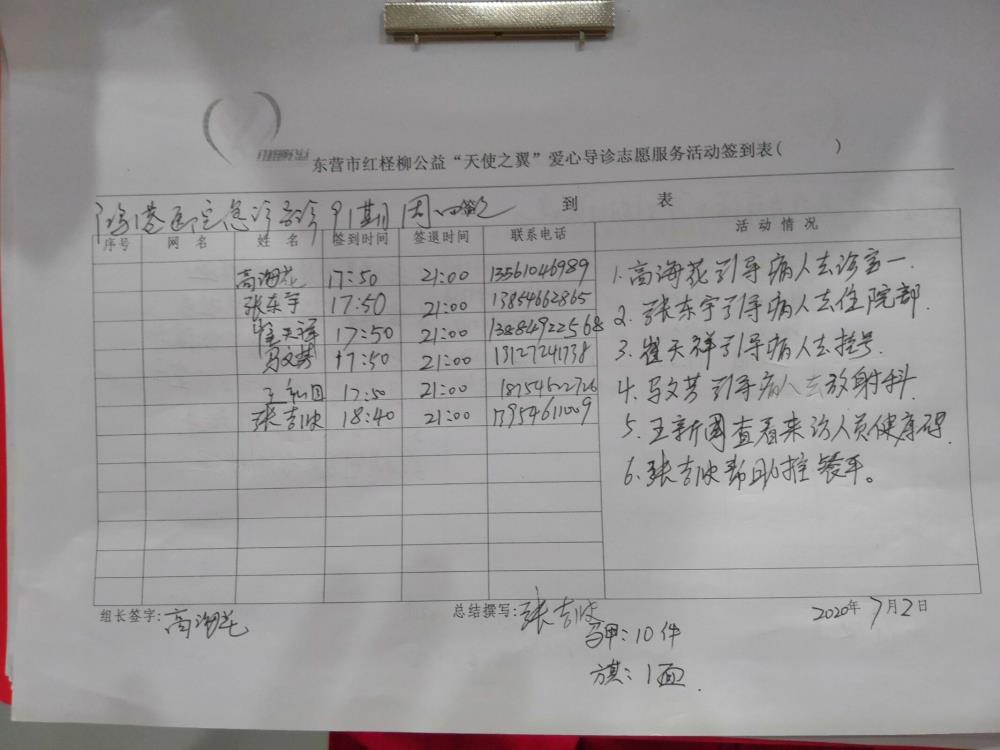 东营市红柽柳公益“天使之翼”爱心导诊志愿服务活动签到表( )
到 表
序号 网名 姓名 签到时间 签退时间 联系电话 活动情况
高海花 17:50 21:00 13561046989
张东宇 17:50 21:00 13854662865
崔天祥 17:50 21:00 13884922568
马文芳 17:50 21:00 13127241738
17:50 21:00 18754602726
张吉波 18:40 21:00 13954611009
1.高海花引导病人去诊室一.
2.张东宇引导病人去住院部.
3.崔天祥引导病人去挂号.
4.马文芳引导病人去放射科.
5.王新国查看来访人员健康码.
6.张吉波帮助推轮车。
组长签字:高海花 总结撰写:张吉波 2020年7月2日
马甲:10件
旗:1面.